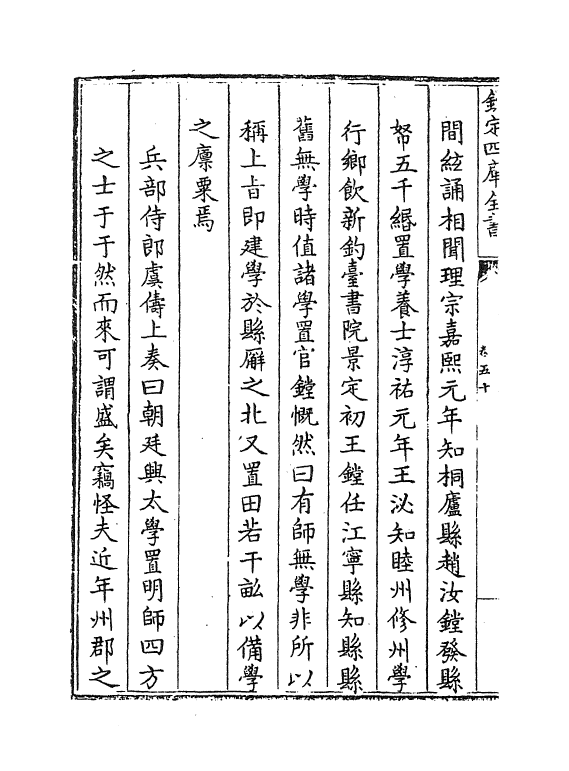 欽定四庫全書
卷五十
間絃誦相聞理宗嘉熙元年知桐廬縣趙汝鏜發縣
帑五千緡置學養士淳祐元年王泌知睦州修州學
行鄉飲新釣臺書院景定初王鏜任江寧縣知縣縣
舊無學時值諸學置官鏜慨然曰有師無學非所以
稱上㫖即建學於縣廨之北又置田若干畝以備學
之廪粟焉
兵部侍郎虞儔上奏曰朝廷興太學置明師四方
之士于于然而來可謂盛矣竊怪夫近年州郡之